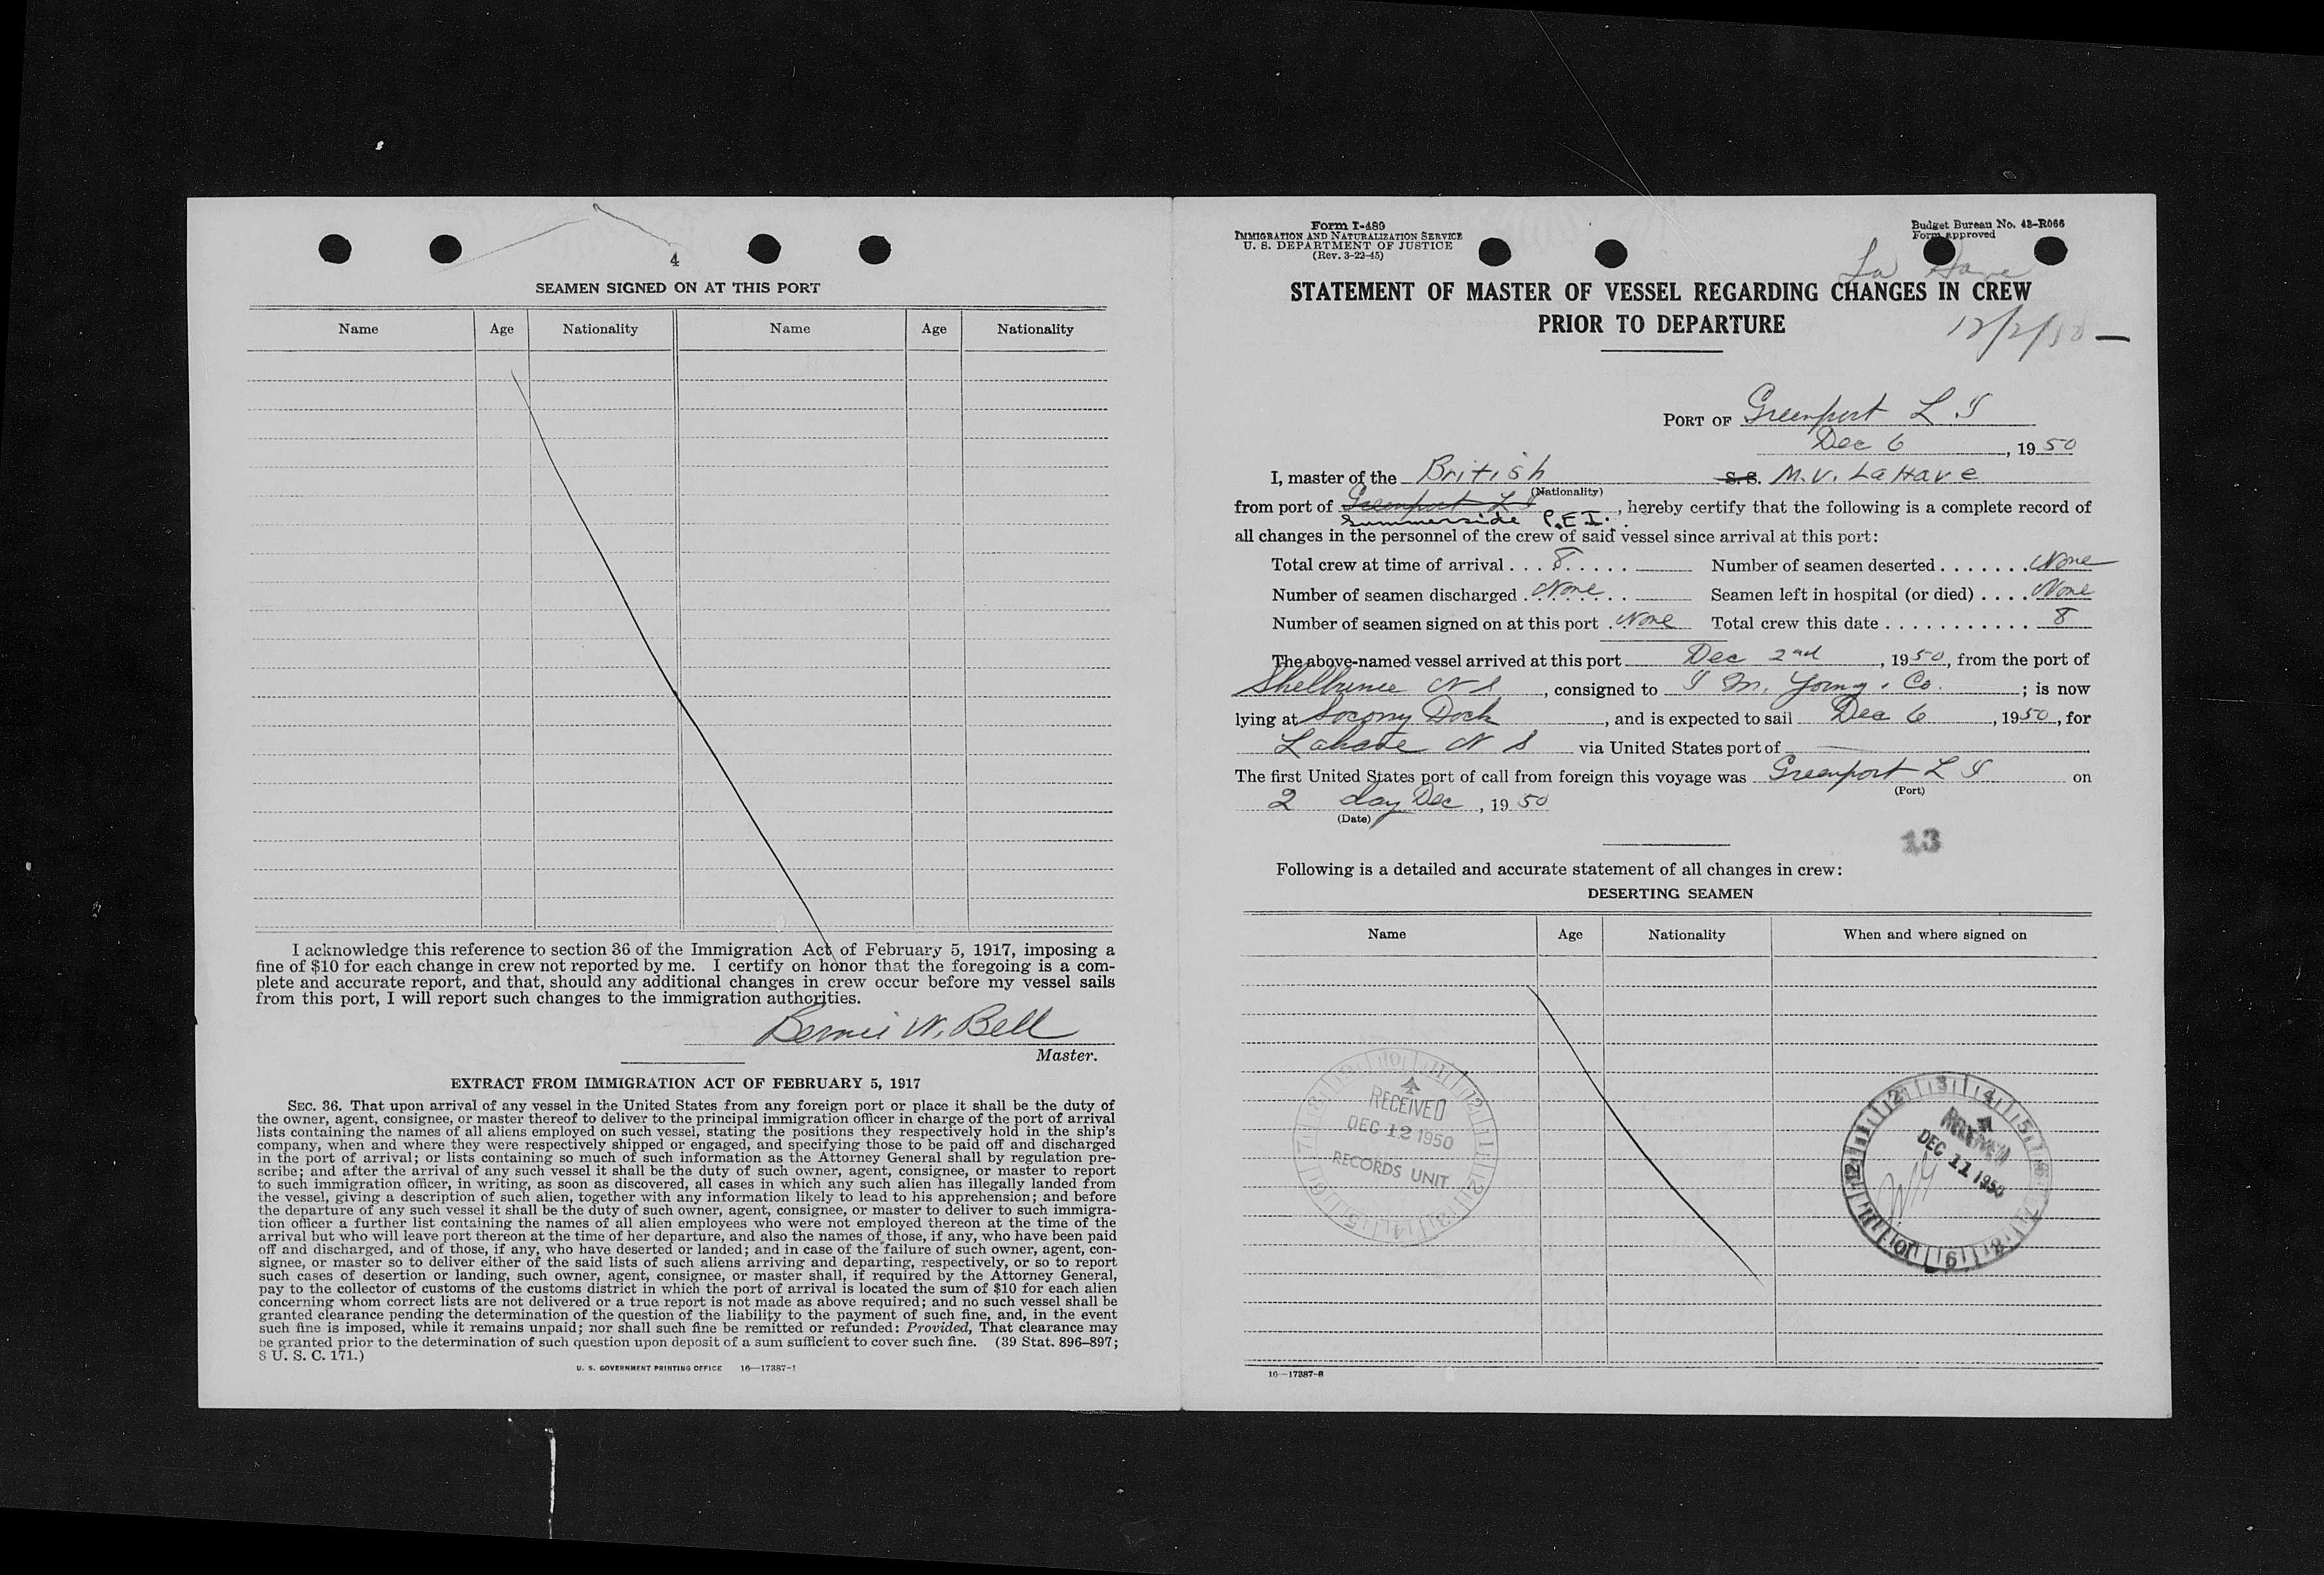 4
SEAMEN SIGNED ON AT THIS PORT
Name Age Nationality Name Age Nationality
I acknowledge this reference to section 36 of the Immigration Act of February 5, 1917, imposing a
fine of $10 for each change in crew not reported by me. I certify on honor that the foregoing is a com-
plete and accurate report, and that, should any additional changes in crew occur before my vessel sails
from this port, I will report such changes to the immigration authorities.
Bernie W. Bell
Master.
EXTRACT FROM IMMIGRATION ACT OF FEBRUARY 5, 1917
SEC. 36. That upon arrival of any vessel in the United States from any foreign port or place it shall be the duty of
the owner, agent, consignee, or master thereof to deliver to the principal immigration officer in charge of the port of arrival
lists containing the names of all aliens employed on such vessel, stating the positions they respectively hold in the ship's
company, when and where they were respectively shipped or engaged, and specifying those to be paid off and discharged
in the port of arrival; or lists containing so much of such information as the Attorney General shall by regulation pre-
scribe; and after the arrival of any such vessel it shall be the duty of such owner, agent, consignee, or master to report
to such immigration officer, in writing, as soon as discovered, all cases in which any such alien has illegally landed from
the vessel, giving a description of such alien, together with any information likely to lead to his apprehension; and before
the departure of any such vessel it shall be the duty of such owner, agent, consignee, or master to deliver to such immigra-
tion officer a further list containing the names of all alien employees who were not employed thereon at the time of the
arrival but who will leave port thereon at the time of her departure, and also the names of those, if any, who have been paid
off and discharged, and of those, if any, who have deserted or landed; and in case of the failure of such owner, agent, con-
signee, or master so to deliver either of the said lists of such aliens arriving and departing, respectively, or so to report
such cases of desertion or landing, such owner, agent, consignee, or master shall, if required by the Attorney General,
pay to the collector of customs of the customs district in which the port of arrival is located the sum of $10 for each alien
concerning whom correct lists are not delivered or a true report is not made as above required; and no such vessel shall be
granted clearance pending the determination of the question of the liability to the payment of such fine, and, in the event
such fine is imposed, while it remains unpaid; nor shall such fine be remitted or refunded: Provided, That clearance may
be granted prior to the determination of such question upon deposit of a sum sufficient to cover such fine. (39 Stat. 896–897;
8 U. S. C. 171.)
U. S. GOVERNMENT PRINTING OFFICE 16—17387-1
Form I-489
IMMIGRATION AND NATURALIZATION SERVICE
U. S. DEPARTMENT OF JUSTICE
(Rev. 3-22-45)
Budget Bureau No. 43-R066
Form approved
La Have
STATEMENT OF MASTER OF VESSEL REGARDING CHANGES IN CREW
PRIOR TO DEPARTURE
12/2/50
PORT OF Greenport L I
Dec 6, 1950
I, master of the British S. S. M.V. LaHave
(Nationality)
from port of Greenport L I, hereby certify that the following is a complete record of
Summerside P.E.I.
all changes in the personnel of the crew of said vessel since arrival at this port:
Total crew at time of arrival . . . 8 . . . . . Number of seamen deserted . . . . . . . None
Number of seamen discharged . None . . Seamen left in hospital (or died) . . . . None
Number of seamen signed on at this port . None Total crew this date . . . . . . . . . . . . 8
The above-named vessel arrived at this port Dec 2nd, 1950, from the port of
N S, consigned to I M. Young & Co.; is now
lying at Socony Dock, and is expected to sail Dec 6, 1950, for
Lahave N S via United States port of
The first United States port of call from foreign this voyage was Greenport L I on
(Port)
2 day Dec, 1950
(Date)
13
Following is a detailed and accurate statement of all changes in crew:
DESERTING SEAMEN
Name Age Nationality When and where signed on
RECEIVED
DEC 12 1950
RECORDS UNIT
RECEIVED
DEC 11 1950
16—17387-2